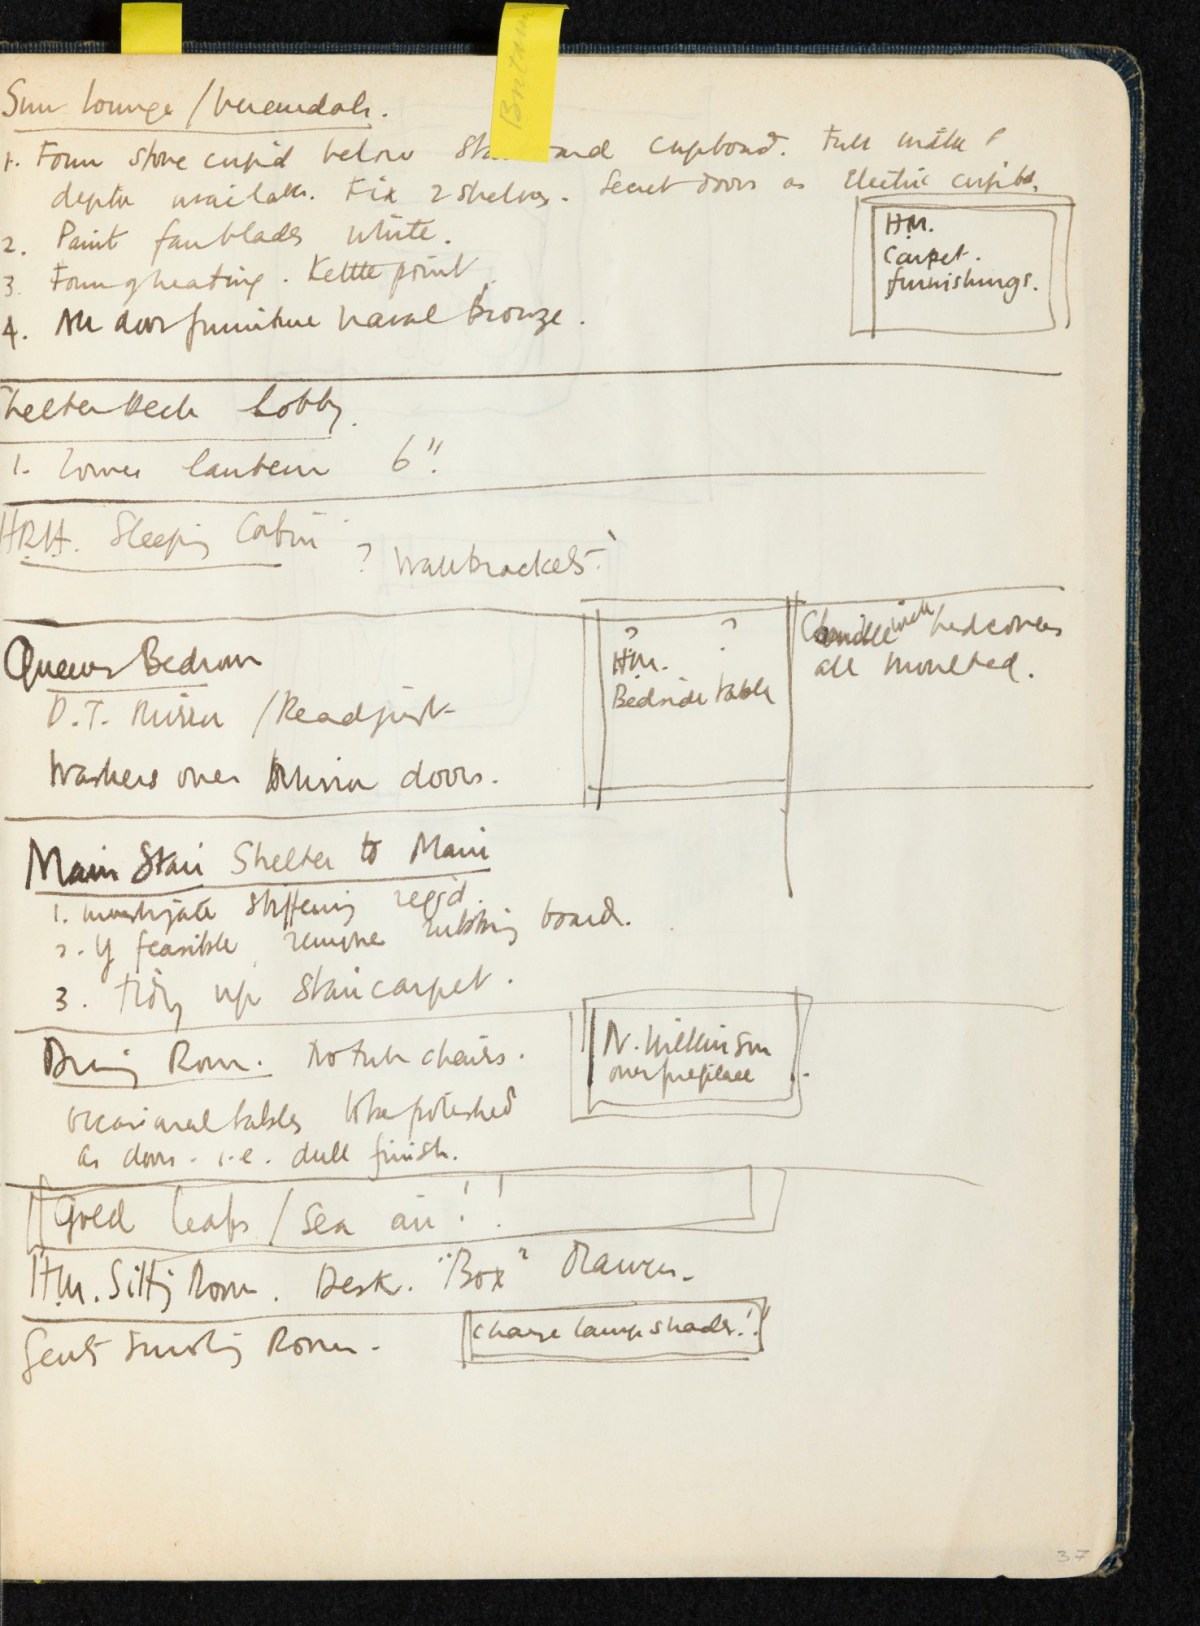 Britan
Sun Lounge / Verandah.
1. Form store cupd below and cupboard. Full width &
depth available. Fix 2 shelves. Secret doors as Electric cupbd.
2. Paint fan blades white.
3. Form of heating. Kettle point
4. All door furniture naval bronze.
H.M.
Carpet.
furnishings.
Shelter Deck Lobby.
1. Lower lantern 6".
H.R.H. Sleeping Cabin ? Wall brackets.
Queens Bedroom
D.T. Mirror / Readjust
Washers over Mirror doors.
? ?
H.M.
Bedside table
Candlewick bedcovers
all moulted.
Main Stair Shelter to Main
1. investigate stiffening reqd.
2. If feasible remove rubbing board.
3. Tidy up stair carpet.
Dining Room. No tub chairs.
occasional tables to be polished
as doors - i.e. dull finish.
N. Wilkinson
over fireplace
Gold leafs / sea air!!
H.M. Sitting Room. Desk. "Box" Drawers.
Gents Smoking Room. Change lampshades!!
37